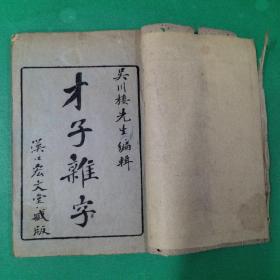 吴川楼先生编辑
才子雜字
漢口宏文堂藏版